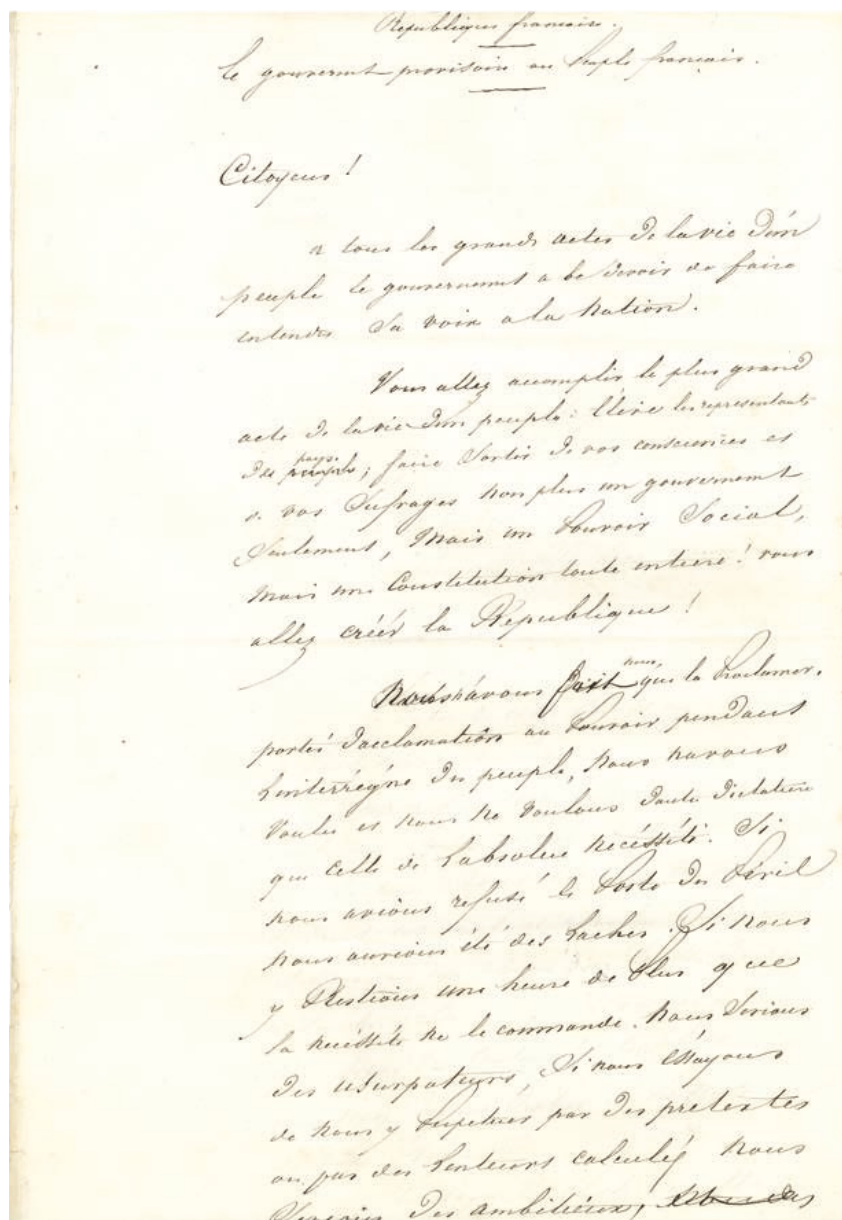 Republique francaise.
le gouvernemt provisoire au Peuple francais.
Citoyens !
a tous les grands actes de la vie d'un
peuple le gouvernement a le devoir de faire
entendre Sa voix a la Nation.
Vous allez accomplir le plus grand
acte de la vie d'un peuple : Elire les representants
des pays ; faire Sortir de vos consciences et
de vos Sufrages non plus un gouvernement
Seulement, Mais un Pouvoir Social,
Mais une Constitution toute entiere ! vous
allez créér la Republique !
Nous n'avons fait nous, que la Proclamer.
portés d'acclamation au Pouvoir pendant
L'interrégne du peuple, Nous navons
Voulu et nous ne Voulons dautre Dictature
que celle de L'absolue Nécéssité. Si
nous avions refusé le Poste du Péril
nous aurions été des Laches. Si nous
y Restions une heure de Plus que
la nécéssité ne le commande. Nous Serions
des usurpateurs, Si nous Essayons
de nous y perpetuer par des pretextes
ou par des Lenteurs calculés Nous
Serions des ambitieux,